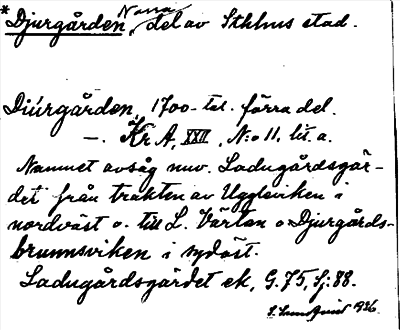 *Djurgården, Norra, del av Sthlms stad.
Diürgården, 1700-tal. förra del.
—. Kr A, XXII, N:o 11, lit. a.
Namnet avsåg nuv. Ladugårdsgär-
det från trakten av Uggleviken i
nordväst o. till L. Värtan o Djurgårds-
brunnsviken i sydöst.
Ladugårdsgärdet ek, G. 75, Sj: 88.
S. Sundqvist 1926